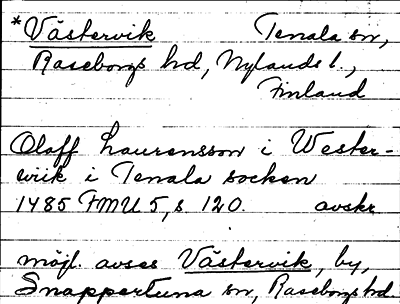 *Västervik Tenala sn,
Raseborgs hd, Nylands l.,
Finland
Olaff Laurensson i Wester-
wiik i Tenala socken
1485 FMU 5, s. 120. avskr
möjl. avses Västervik, by,
Snappertuna sn, Raseborgs hd